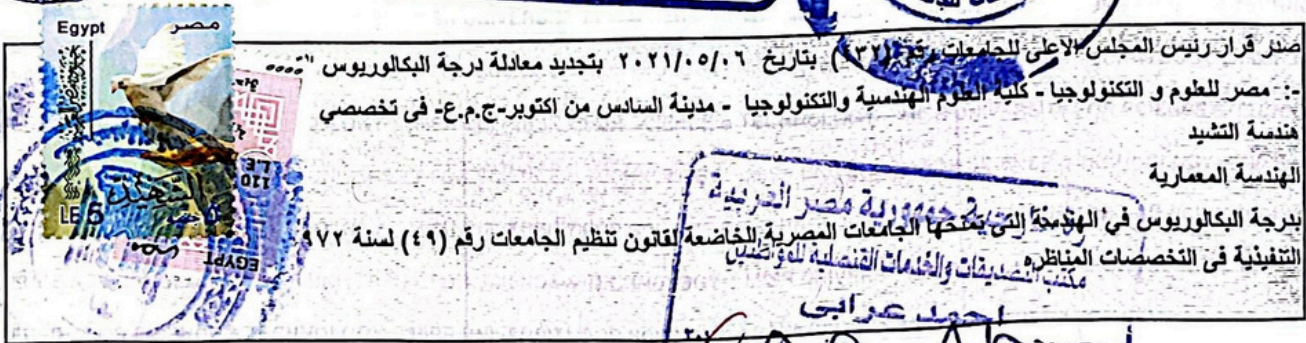 Egypt مصر
صدر قرار رئيس المجلس الاعلى للجامعات رقم (٤٣٢) بتاريخ ٢٠٢١/٠٥/٠٦ بتجديد معادلة درجة البكالوريوس
-: مصر للعلوم و التكنولوجيا - كلية العلوم الهندسية والتكنولوجيا - مدينة السادس من اكتوبر-ج.م.ع- فى تخصصي
هندسة التشيد
الهندسة المعمارية
بدرجة البكالوريوس في الهندسة التى تمنحها الجامعات المصرية الخاضعة لقانون تنظيم الجامعات رقم (٤٩) لسنة ٩٧٢
التنفيذية فى التخصصات المناظره
LE 5
110
L.E
EGYPT
مصر
جمهورية مصر العربية
مكتب التصديقات والخدمات القنصليه للمواطنين
احمد عرابى